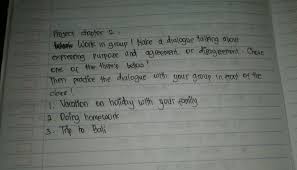 Project chapter 2.
Work in group! Make a dialogue talking about
expressing purpose and agreement or disagreement. Chose
one of the theme's below!
Then practice the dialogue with your group in front of the
class!
1. Vacation on holiday with your family
2. Doing homework
3. Trip to Bali